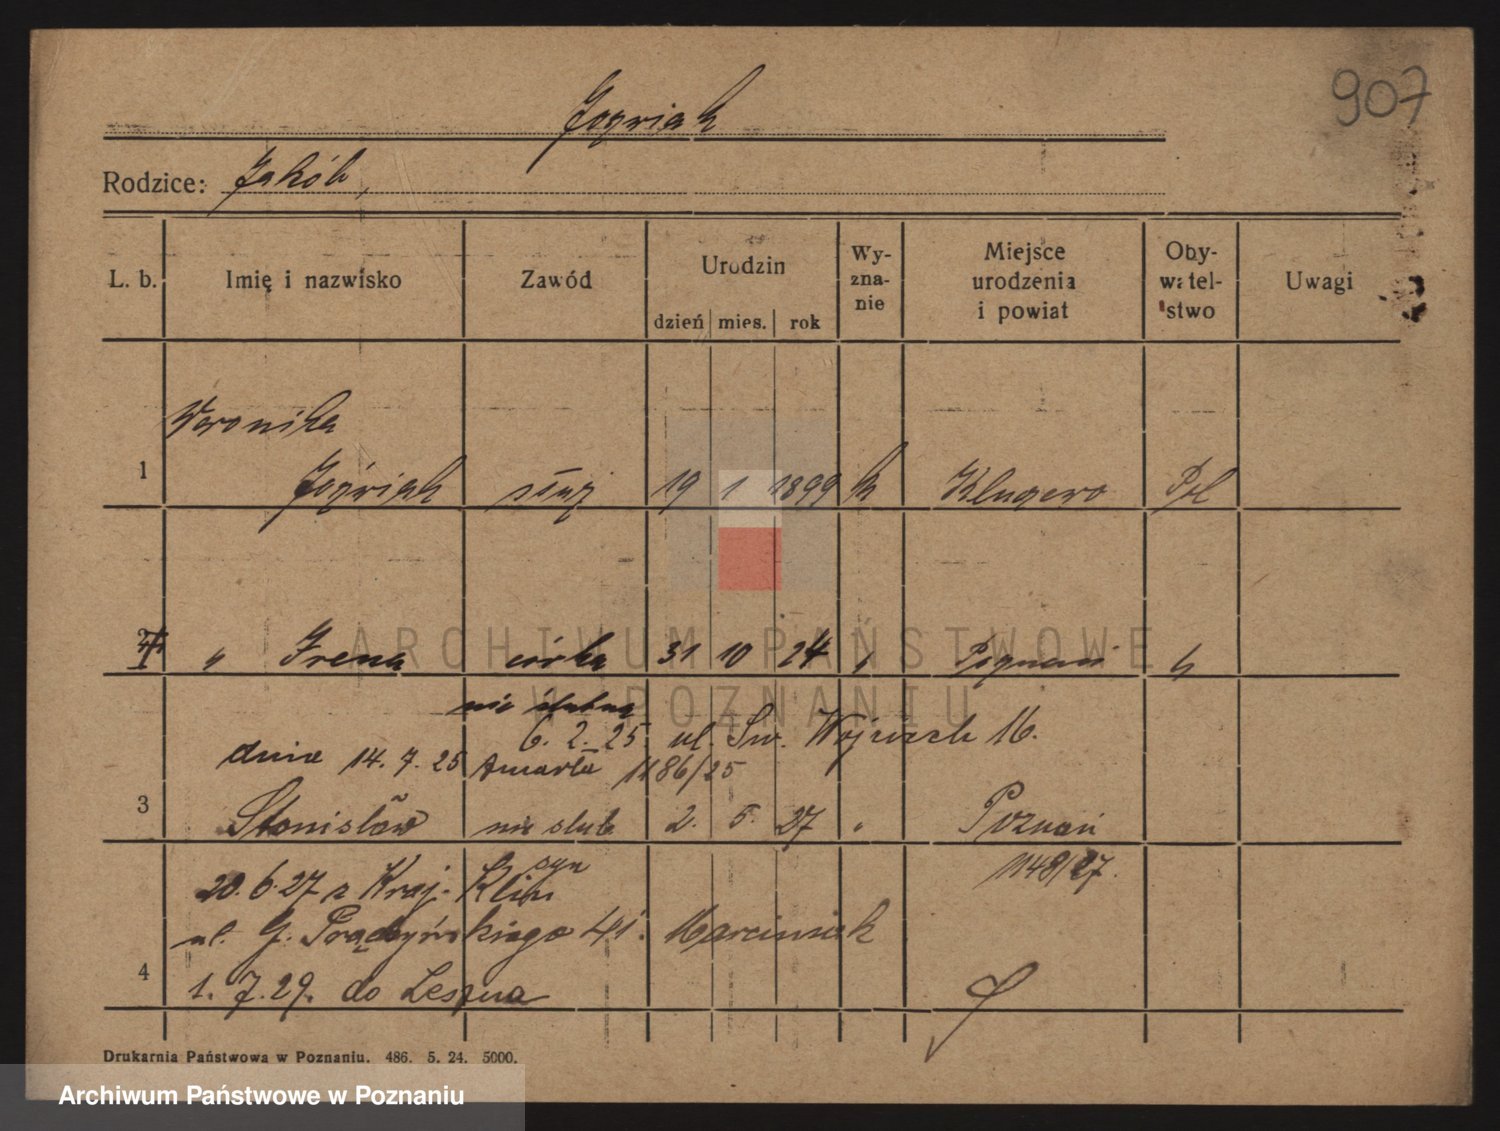 907
Jożwiak
Rodzice: Jakób,
L. b. Imię i nazwisko Zawód Urodzin dzień mies. rok Wy-zna-nie Miejsce urodzenia i powiat Oby-watel-stwo Uwagi
Weronika
1 Jóźwiak służ 19 1 1899 k Klugewo Pol
2 " Irena córka 31 10 24 " Poznań "
nie ślubna
6. 2. 25 ul. Św. Wojciech 16.
dnia 14. 7. 25 zmarła 1186/25
3 Stanisław nie ślub 2. 5. 27 " Poznań
syn 1148/27.
20. 6. 27 z Kraj. Klin
ul. G. Prądzyńskiego 41. Marciniak
4 1. 7. 29. do Leszna
Drukarnia Państwowa w Poznaniu. 486. 5. 24. 5000.
ARCHIWUM PAŃSTWOWE
W POZNANIU
Archiwum Państwowe w Poznaniu